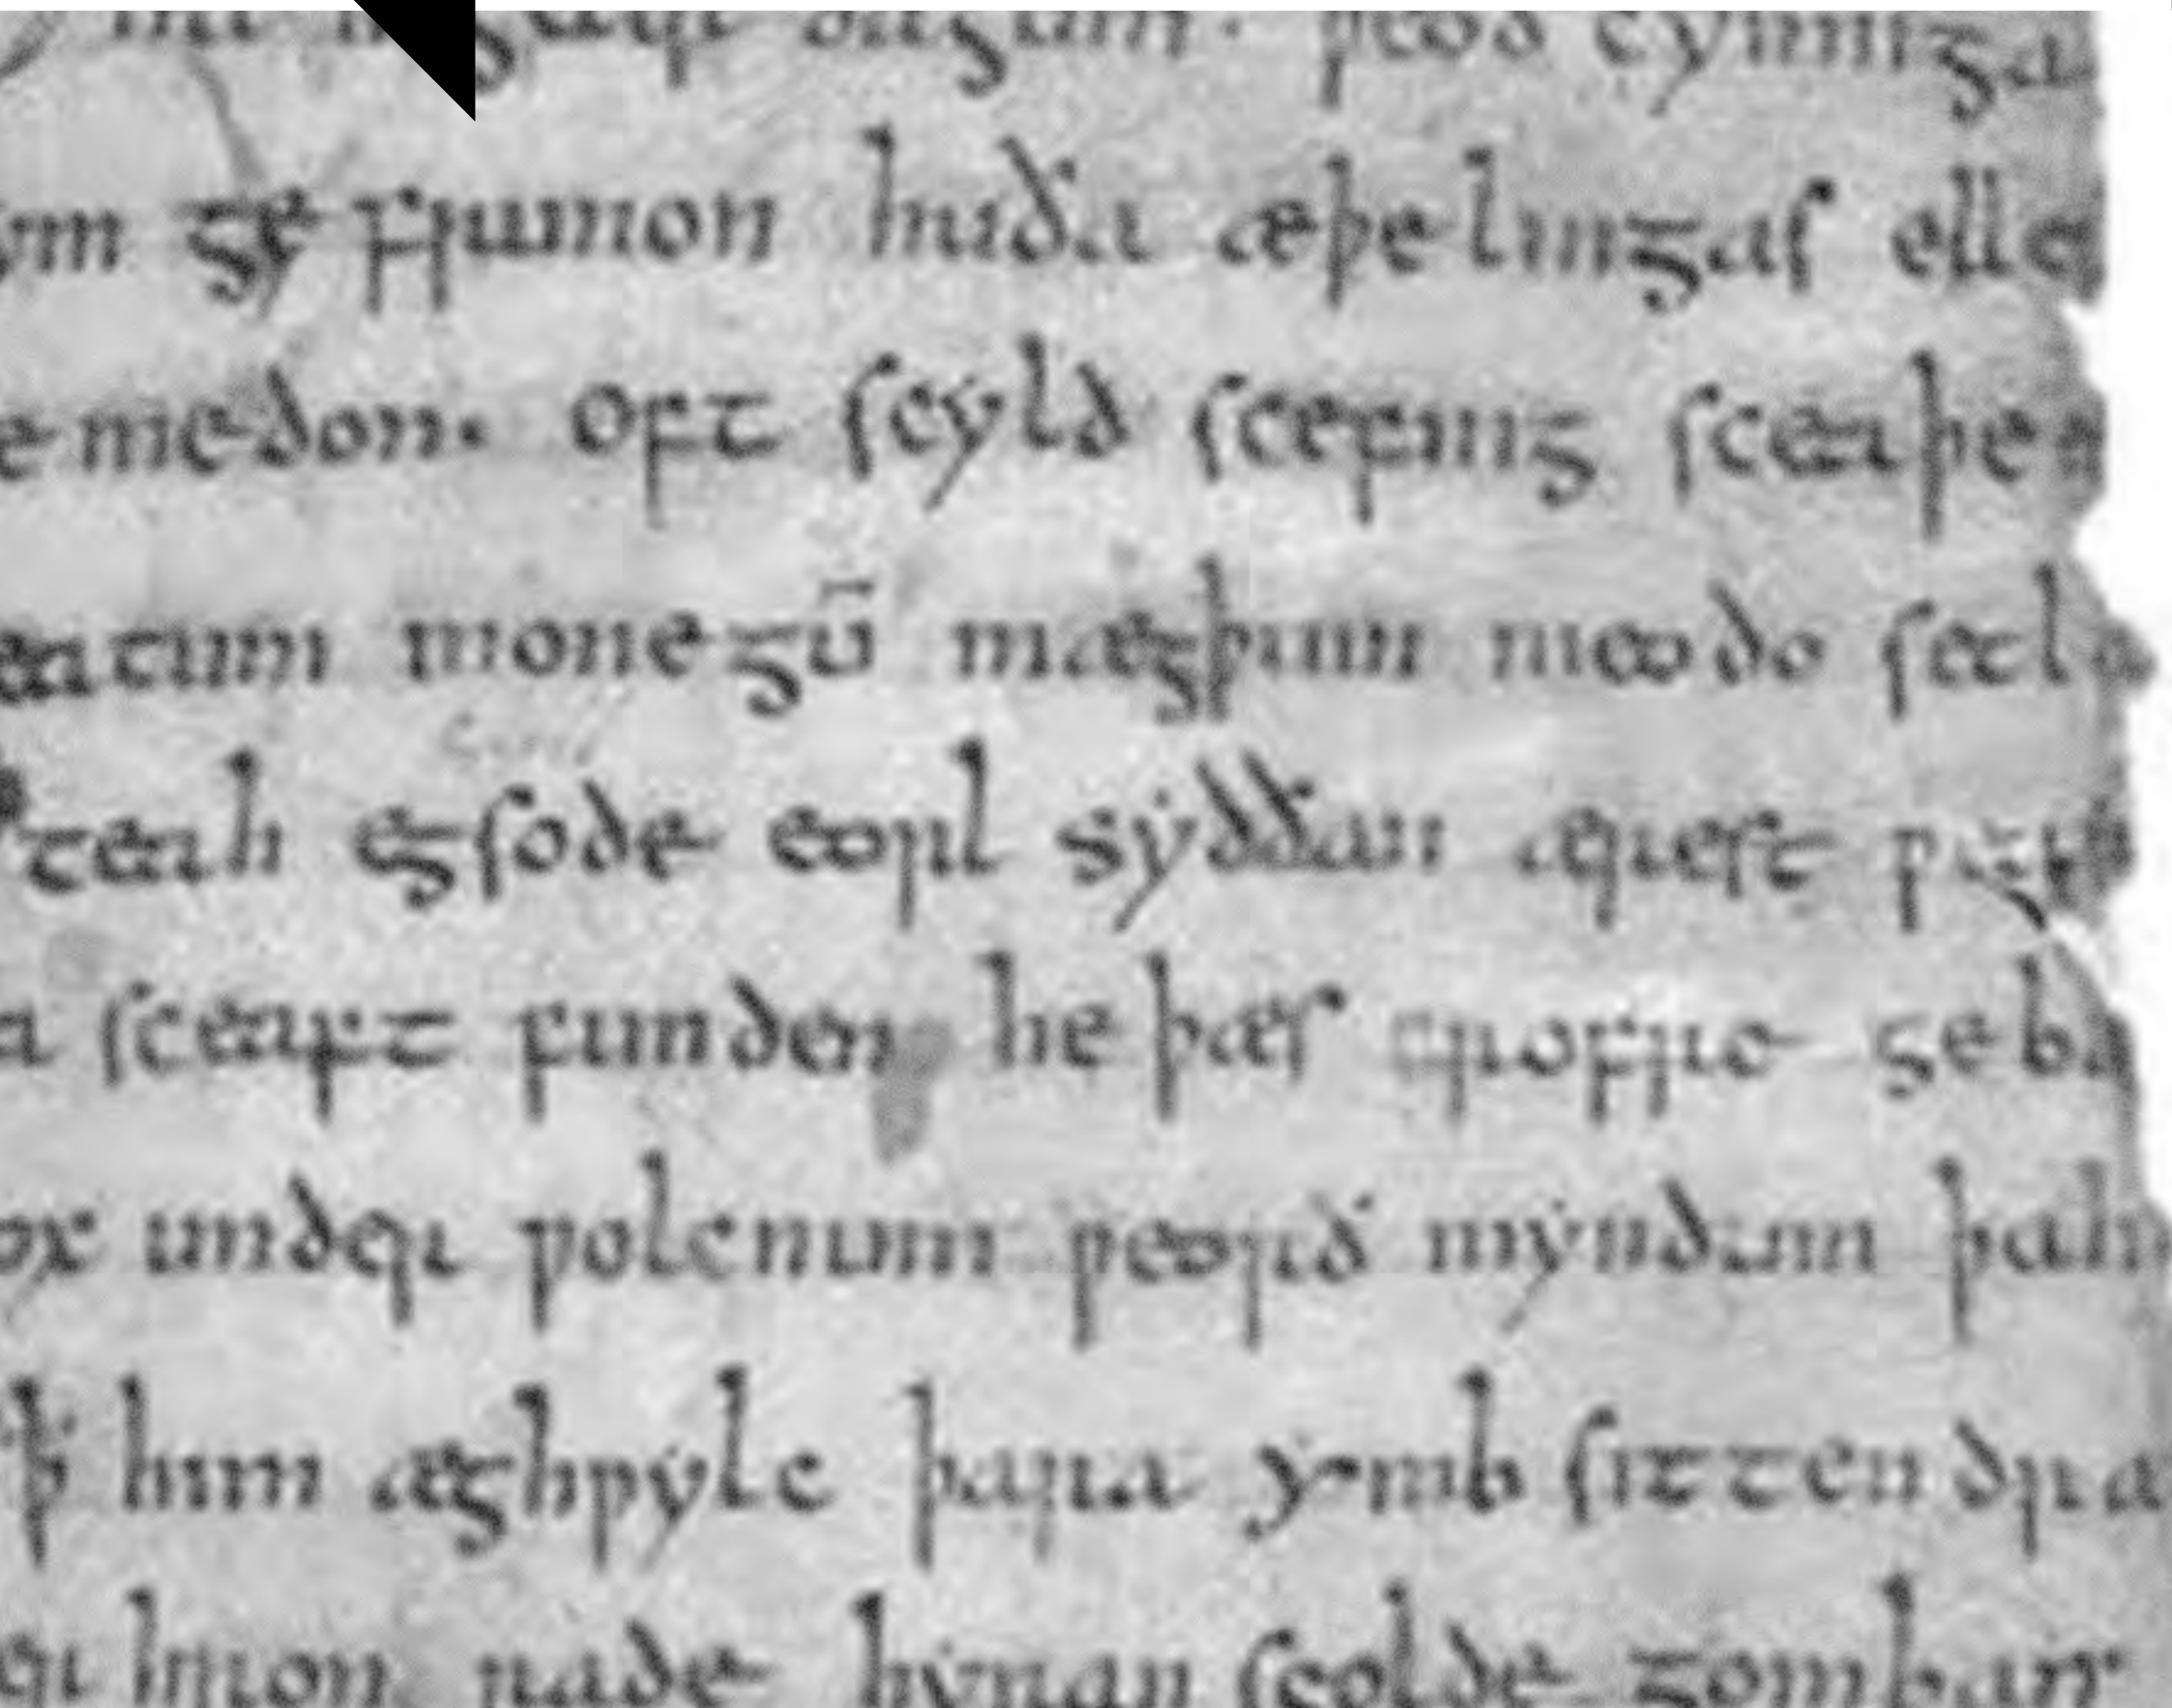 in gear dagum. þeod cyninga
ym ge frunon huða æþelingas elle
e medon. oft scyld scefing sceaþen
eatum monegū mægþum meodo setla
teah egsode eorl syððan ærest ƿear
a sceaft funden he þæs frofre geba
ox under ƿolcnum ƿeorð myndum þah
ꝥ him æghƿylc þara ymb sittendra
er hron rade hyran scolde gomban